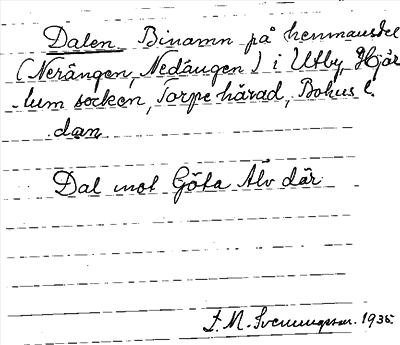 Dalen Binamn på hemmansdel
(Nerängen, Nedängen) i Utby, Hjär
tum socken, Torpe härad, Bohus l.
dan
Dal mot Göta Älv där
F. M. Svenungsson. 1935.